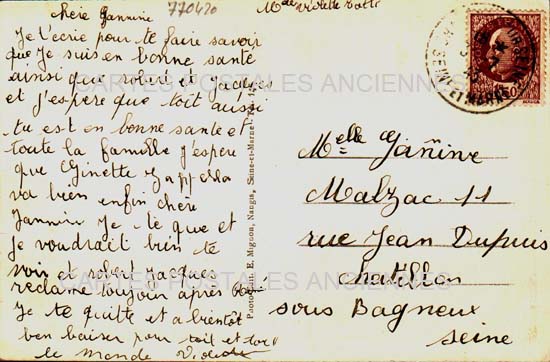 chère Jannine
770420
Mde Violette
Je t'ecrie pour te faire savoir
que Je suis en bonne santé
ainsi que robert et Jacques
CARTES POSTALES ANCIENNES
et j'espere que toit aussi
tu est en bonne sante et
toute la famille j'espere
que Ginette
va bien enfin chère
Jannine Je te que et
Je voudrait bien te
voir et robert Jacques
CARTES POSTALES ANCIENNES
reclame toujour après
Je te quitte et a bientôt
ben baiser pour toit et tou
le monde
Photo-Edit. E. Mignon, Nangis, Seine-et-Marne
SEINE ET MARNE
Melle Janine
Malzac 11
rue Jean Dupuis
Chatillon
sous Bagneux
Seine